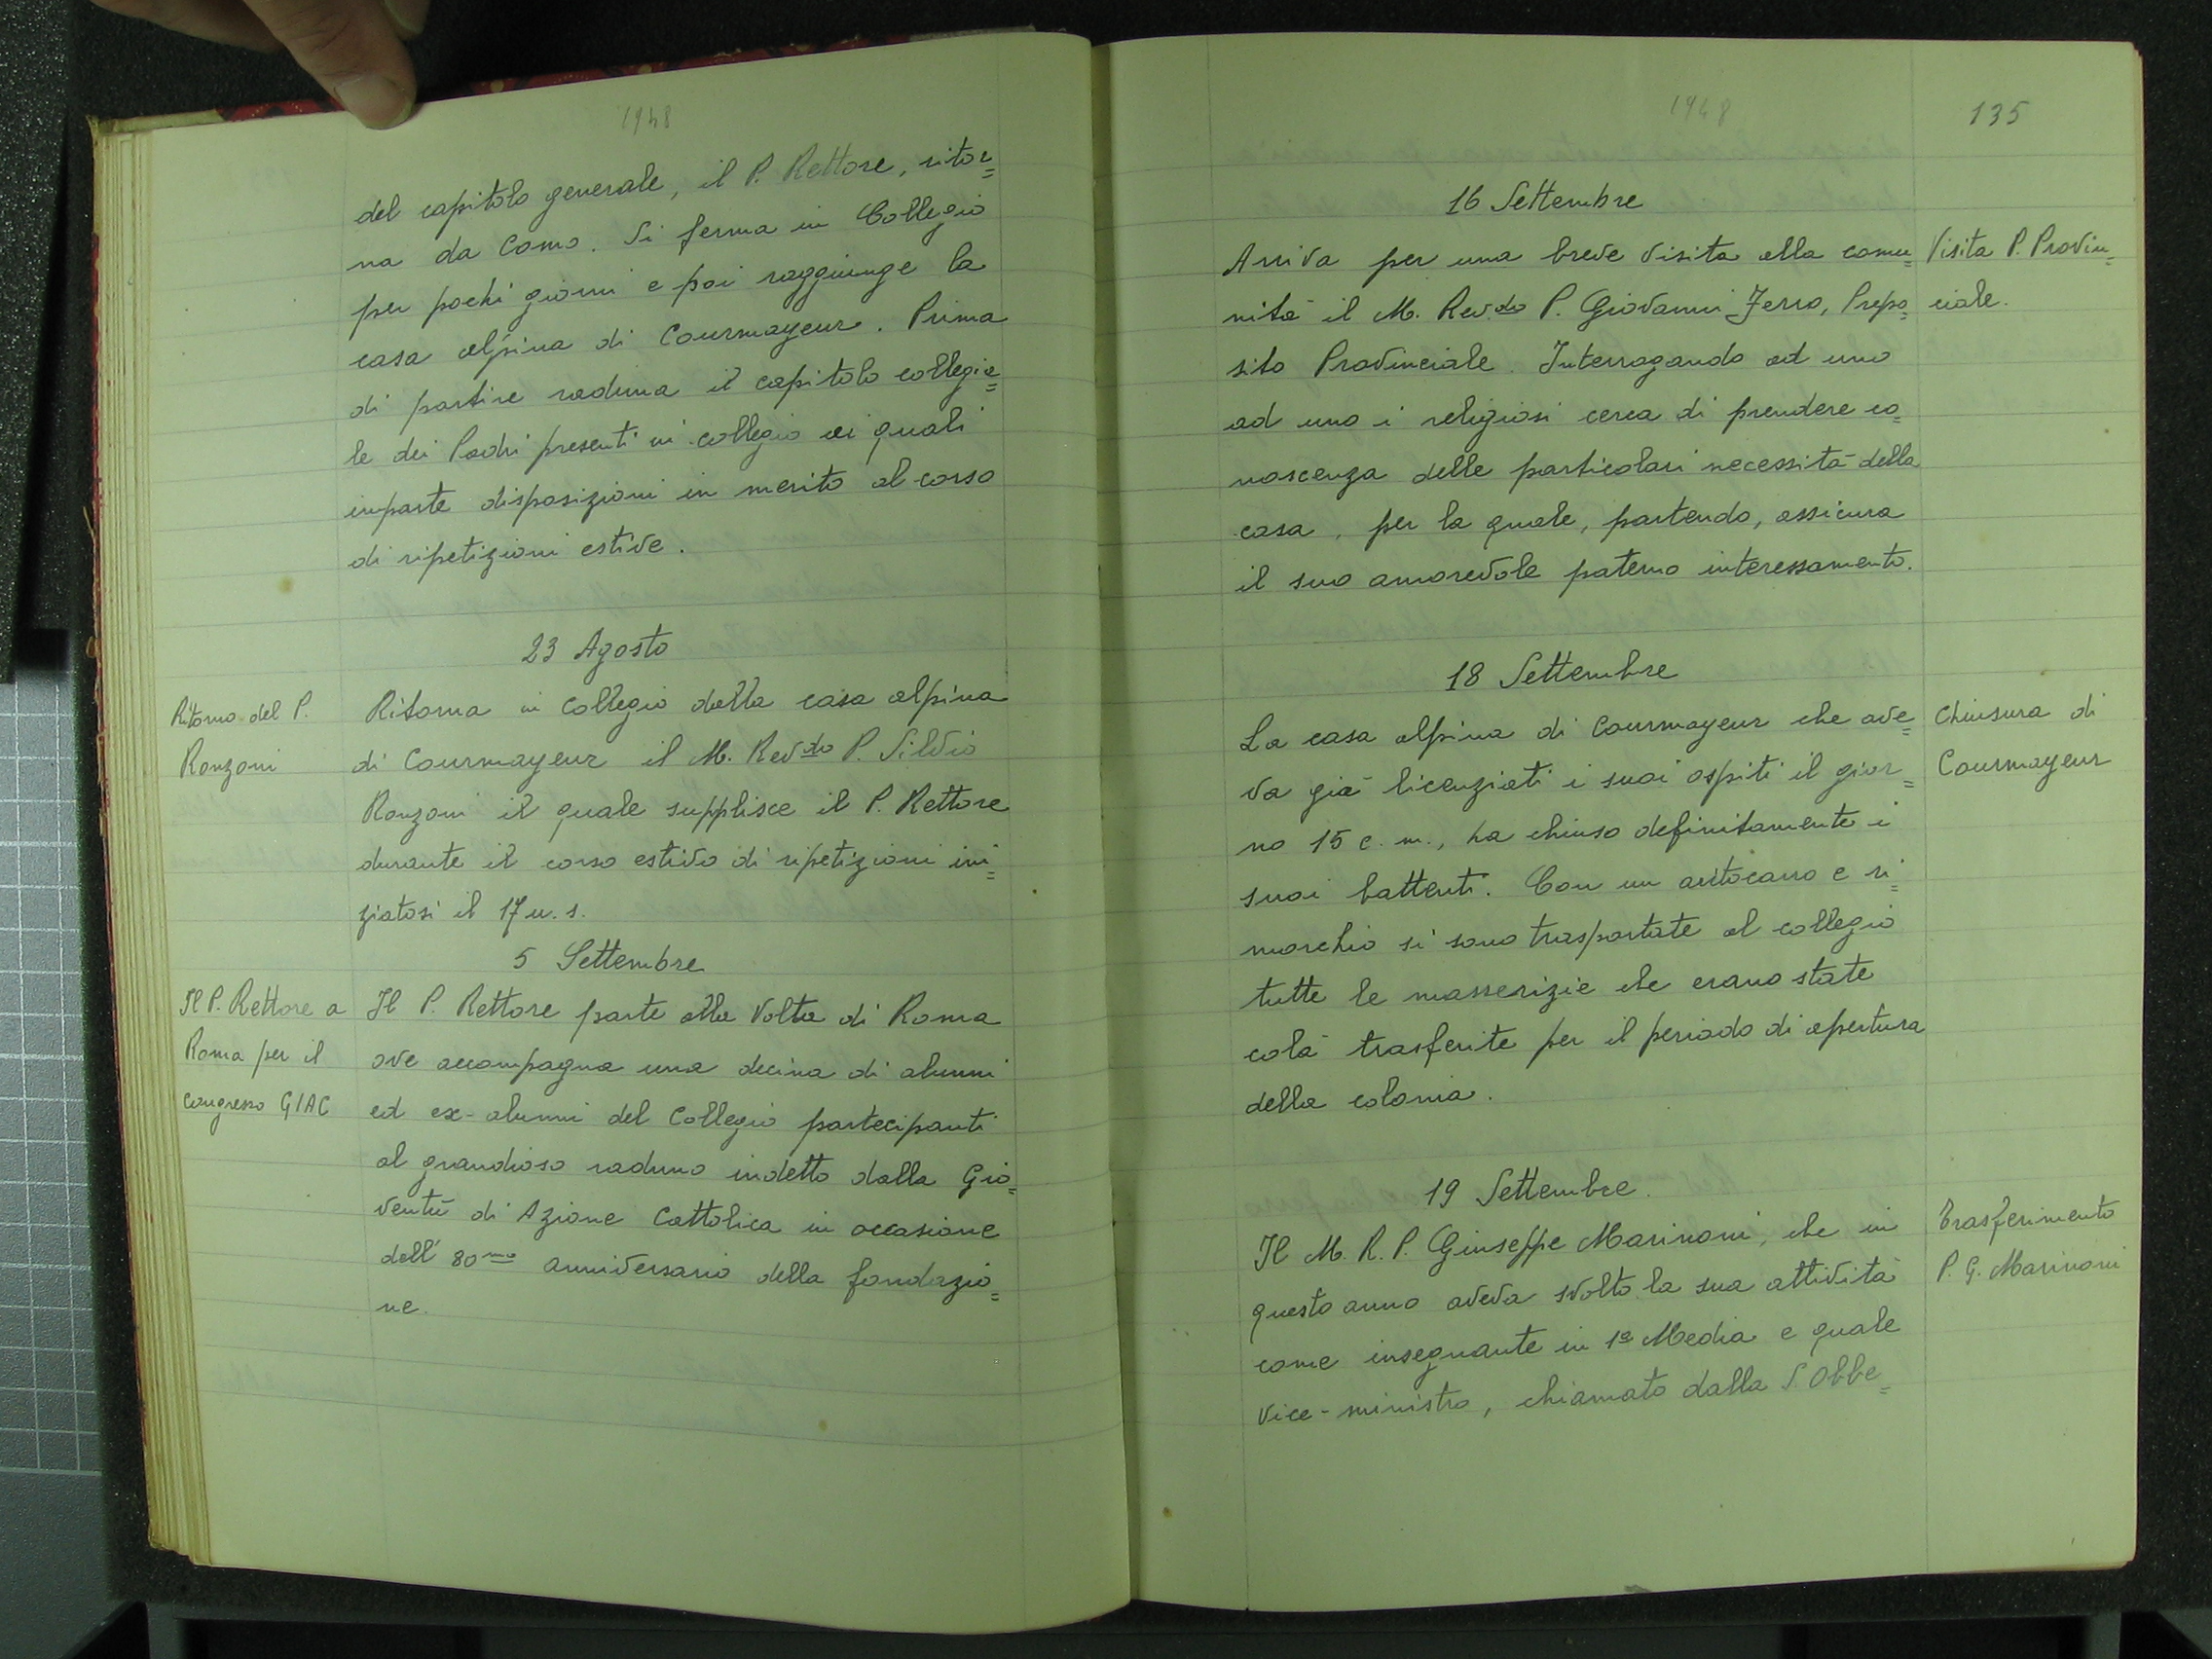 1948
del capitolo generale, il P. Rettore, ritor=
na da Como. Si ferma in Collegio
per pochi giorni e poi raggiunge la
casa alpina di Courmayeur. Prima
di partire raduna il capitolo collegia=
le dei Padri presenti in collegio ai quali
imparte disposizioni in merito al corso
di ripetizioni estive.
23 Agosto
Ritorno del P.
Ronzoni
Ritorna in Collegio dalla casa alpina
di Courmayeur il M. Revdo P. Silvio
Ronzoni il quale supplisce il P. Rettore
durante il corso estivo di ripetizioni ini=
ziatosi il 17 u. s.
5 Settembre
Il P. Rettore a
Roma per il
congresso GIAC
Il P. Rettore parte alla volta di Roma
ove accompagna una decina di alunni
ed ex-alunni del Collegio partecipanti
al grandioso raduno indetto dalla Gio=
ventù di Azione Cattolica in occasione
dell' 80mo anniversario della fondazio=
ne.
1948
135
16 Settembre
Visita P. Provin=
ciale.
Arriva per una breve visita alla comu=
nità il M. Rev.do P. Giovanni Ferro, Prepo=
sito Provinciale. Interrogando ad uno
ad uno i religiosi cerca di prendere co=
noscenza delle particolari necessità della
casa, per la quale, partendo, assicura
il suo amorevole paterno interessamento.
18 Settembre
Chiusura di
Courmayeur
La casa alpina di Courmayeur che ave=
va già licenziati i suoi ospiti il gior=
no 15 c. m., ha chiuso definitamente i
suoi battenti. Con un autocarro e ri=
morchio si sono trasportate al collegio
tutte le masserizie che erano state
colà trasferite per il periodo di apertura
della colonia.
19 Settembre.
Trasferimento
P. G. Marinoni
Il M. R. P. Giuseppe Marinoni, che in
questo anno aveva svolto la sua attività
come insegnante in 1a Media e quale
Vice-ministro, chiamato dalla S. Obbe=